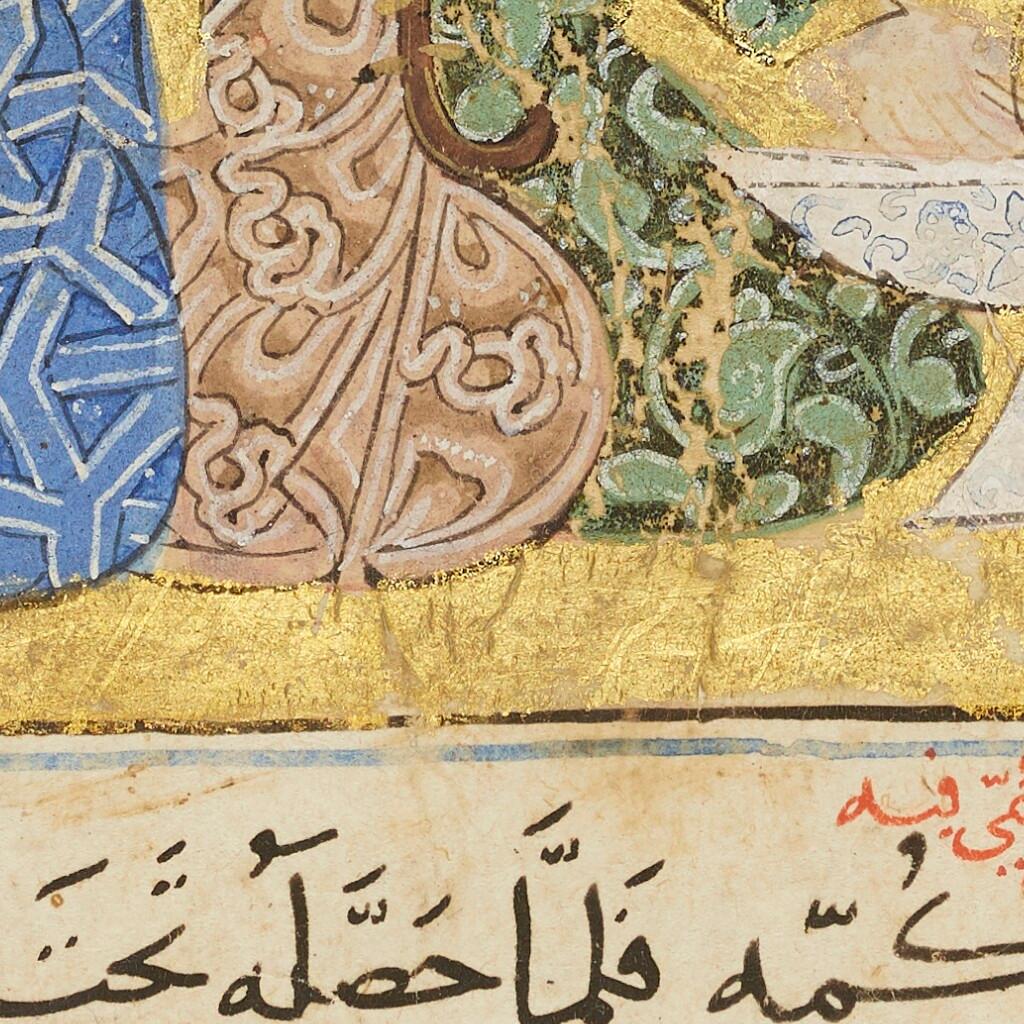 فيه
كُمّه فَلَمَّا حَصَّلَه تَحتَ